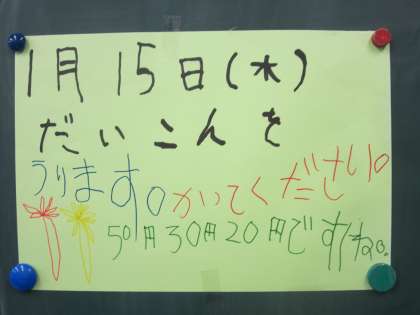 1月15日(水)
だいこんを
うります。かいてくださいの
50円30円20円ですね。